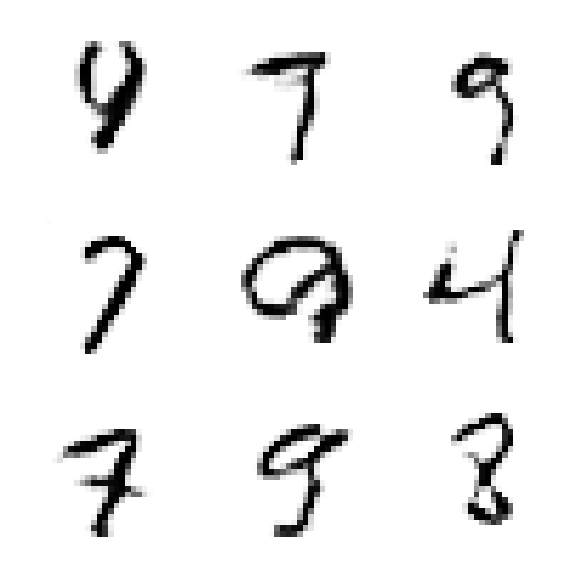 4 7 9
7 9 4
7 9 8